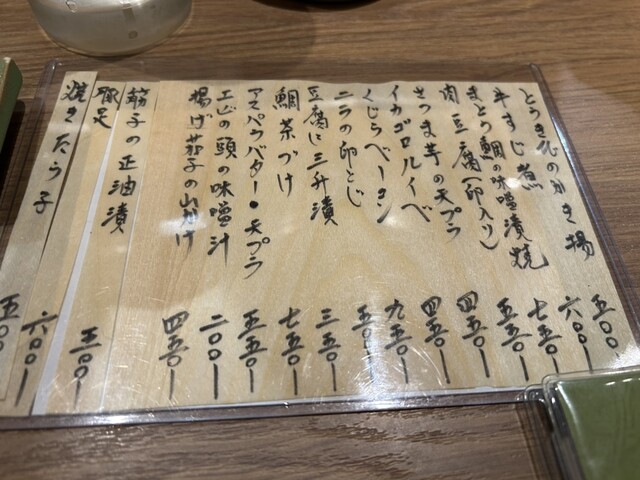 とうきびのかき揚 五〇〇
牛すじ煮 六〇〇-
まとう鯛の味噌漬焼 七五〇-
肉豆腐(卵入り) 五五〇-
さつま芋の天プラ 四五〇-
イカゴロルイベ 四五〇-
くじらベーコン 九五〇-
ニラの卵とじ 五〇〇-
豆腐に三升漬 三五〇-
鯛茶づけ 七五〇-
アスパラバター・天プラ 五五〇-
エビの頭の味噌汁 二〇〇-
揚げ茄子の山かけ 四五〇-
筋子の正油漬 五〇〇-
豚足 六〇〇-
焼きたら子 五〇〇